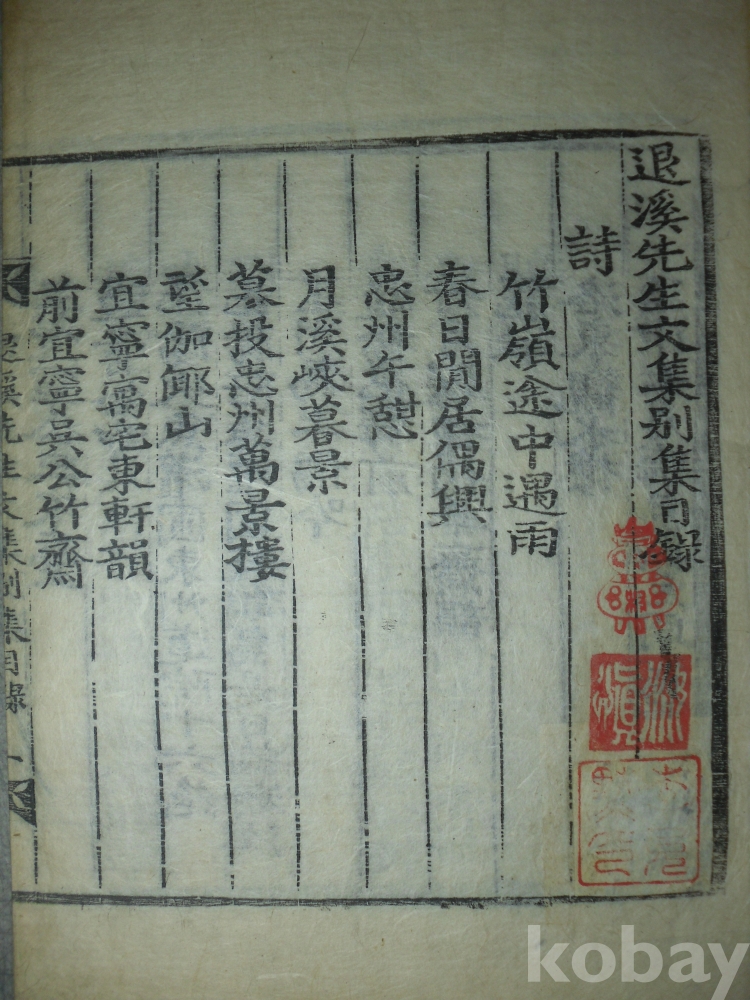 退溪先生文集别集目錄
詩
竹嶺途中遇雨
春日閒居偶興
忠州午憇
月溪峽暮景
暮投忠州萬景樓
望伽倻山
宜寧寓宅東軒韻
前宜寧吳公竹齋
退溪先生文集別集目錄 一
kobay